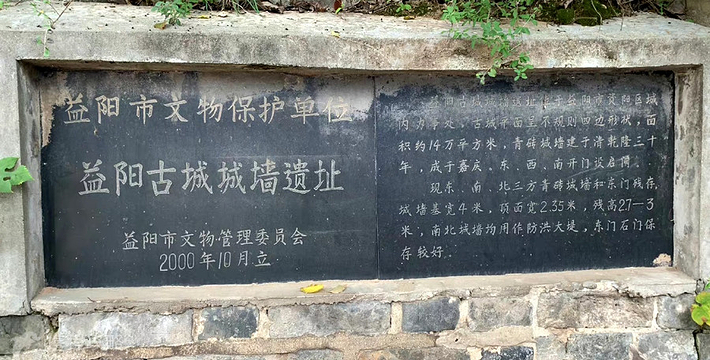 益阳市文物保护单位
益阳古城城墙遗址
益阳市文物管理委员会
2000年10月立
益阳古城城墙遗址位于益阳市资阳区城
内办事处，古城平面呈不规则四边形状，面
积约14万平方米，青砖城墙建于清乾隆三十
年，成于嘉庆、东、西、南开门设启闭。
现东、南、北三方青砖城墙和东门残存，
城墙基宽4米，顶面宽2.35米，残高2.7—3
米，南北城墙均用作防洪大堤，东门石门保
存较好。